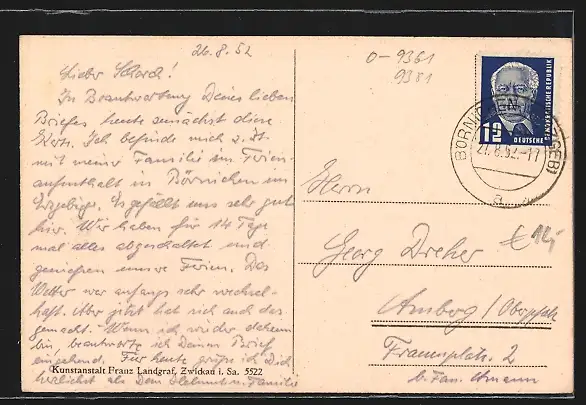 26.8.52
Lieber Schorch!
In Beantwortung Deines lieben
Briefes heute zunächst diese
Karte. Ich befinde mich z. Zt.
mit meiner Familie im Ferien-
aufenthalt in Börnichen im
Erzgebirge. Es gefällt uns sehr gut
hier. Wir haben für 14 Tage
mal alles abgeschaltet und
genießen unsre Ferien. Das
Wetter war anfangs sehr wechsel-
haft. Aber jetzt hat sich auch das
gemacht. Wenn ich wieder daheim
bin, beantworte ich Deinen Brief
eingehend. Für heute grüße ich Dich
herzlichst als Dein Helmut u. Familie
Kunstanstalt Franz Landgraf, Zwickau i. Sa. 5522
0-9361
9381
12
DEUTSCHE
DEMOKRATISCHE REPUBLIK
BÖRNICHEN
27.8.52.-17
a
Herrn
Georg Dreher
€ 12,-
Amberg/Oberpfalz
Frauenplatz. 2
b. Fam.